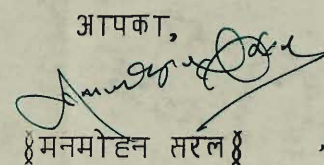 आपका,
(मनमोहन सरल)